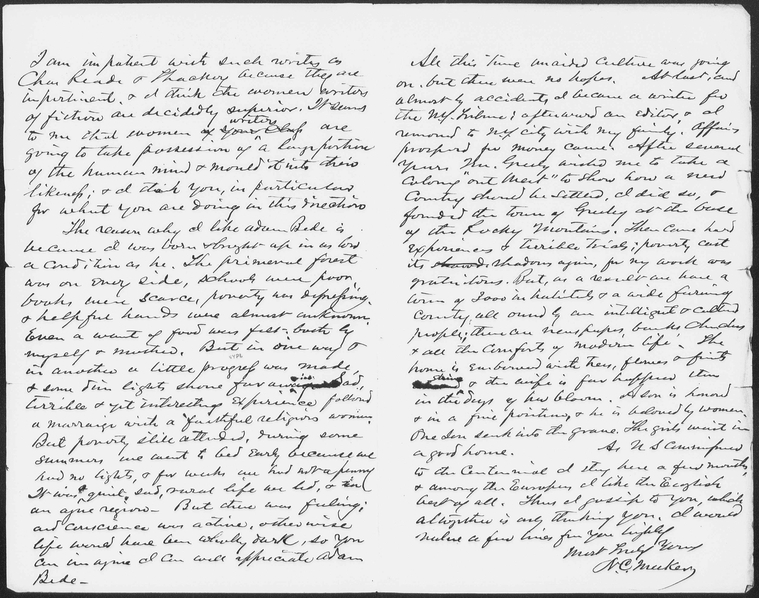 I am impatient with such writers as
Chas Reade & Thackery because they are
impertinent, & I think the women writers
of fiction are decidedly superior. It seems
to me that women writers of your Class are
going to take possession of a large portion
of the human mind & mould it into their
likeness; & I thank you, in particular
for what you are doing in this direction
The reason why I like Adam Bede is
because I was born & brought up in as low
a condition as he. The primeval forest
was on every side, schools were poor,
books were scarce, poverty was depressing,
& helpful hands were almost unknown.
Even a want of food was felt—both by
myself & mother. But in one way &
in another a little progress was made,
& some dim lights shone far Sad,
terrible & yet interesting experience followed
a marriage with a faithful religious woman.
But poverty still attended, during some
summers we went to bed early because we
had no lights, & for weeks we had not a penny
It was a quiet, sad, rural life we led, & in
an ague region— But there was feeling;
and conscience was active, otherwise
life would have been wholly dark, so you
can imagine I can well appreciate Adam
Bede—
All this time unaided culture was going
on, but there were no hopes. At last, and
almost by accident, I became a writer for
the N.Y. Tribune; afterward an editor, & I
removed to N.Y. city with my family. Affairs
prospered for money came. After several
years Mr. Greeley wished me to take a
colony "out West" to show how a new
Country should be settled, I did so, &
founded the town of Greeley at the base
of the Rocky Mountains. Then came hard
experiences & terrible trials; poverty cast
its shadows again, for my work was
gratuitous. But, as a result we have a
town of 2000 inhabitants & a wide farming
County, all owned by an intelligent & cultured
people; there are newspapers, banks, churches
& all the comforts of modern life. The
home is embowered with trees, flowers & fruits
& the wife is far happier than
in the days of her bloom. A son is honored
& in a fine position, & he is beloved by women.
One son sank into the grave. The girls wait in
a good home. As U S Commissioner
to the Centennial I stay here a few months,
& among the Europeans I like the English
best of all. Thus I gossip to you, which
altogether is only thinking you. I would
value a few lines from you highly
Most truly Yours
N.C. Meeker